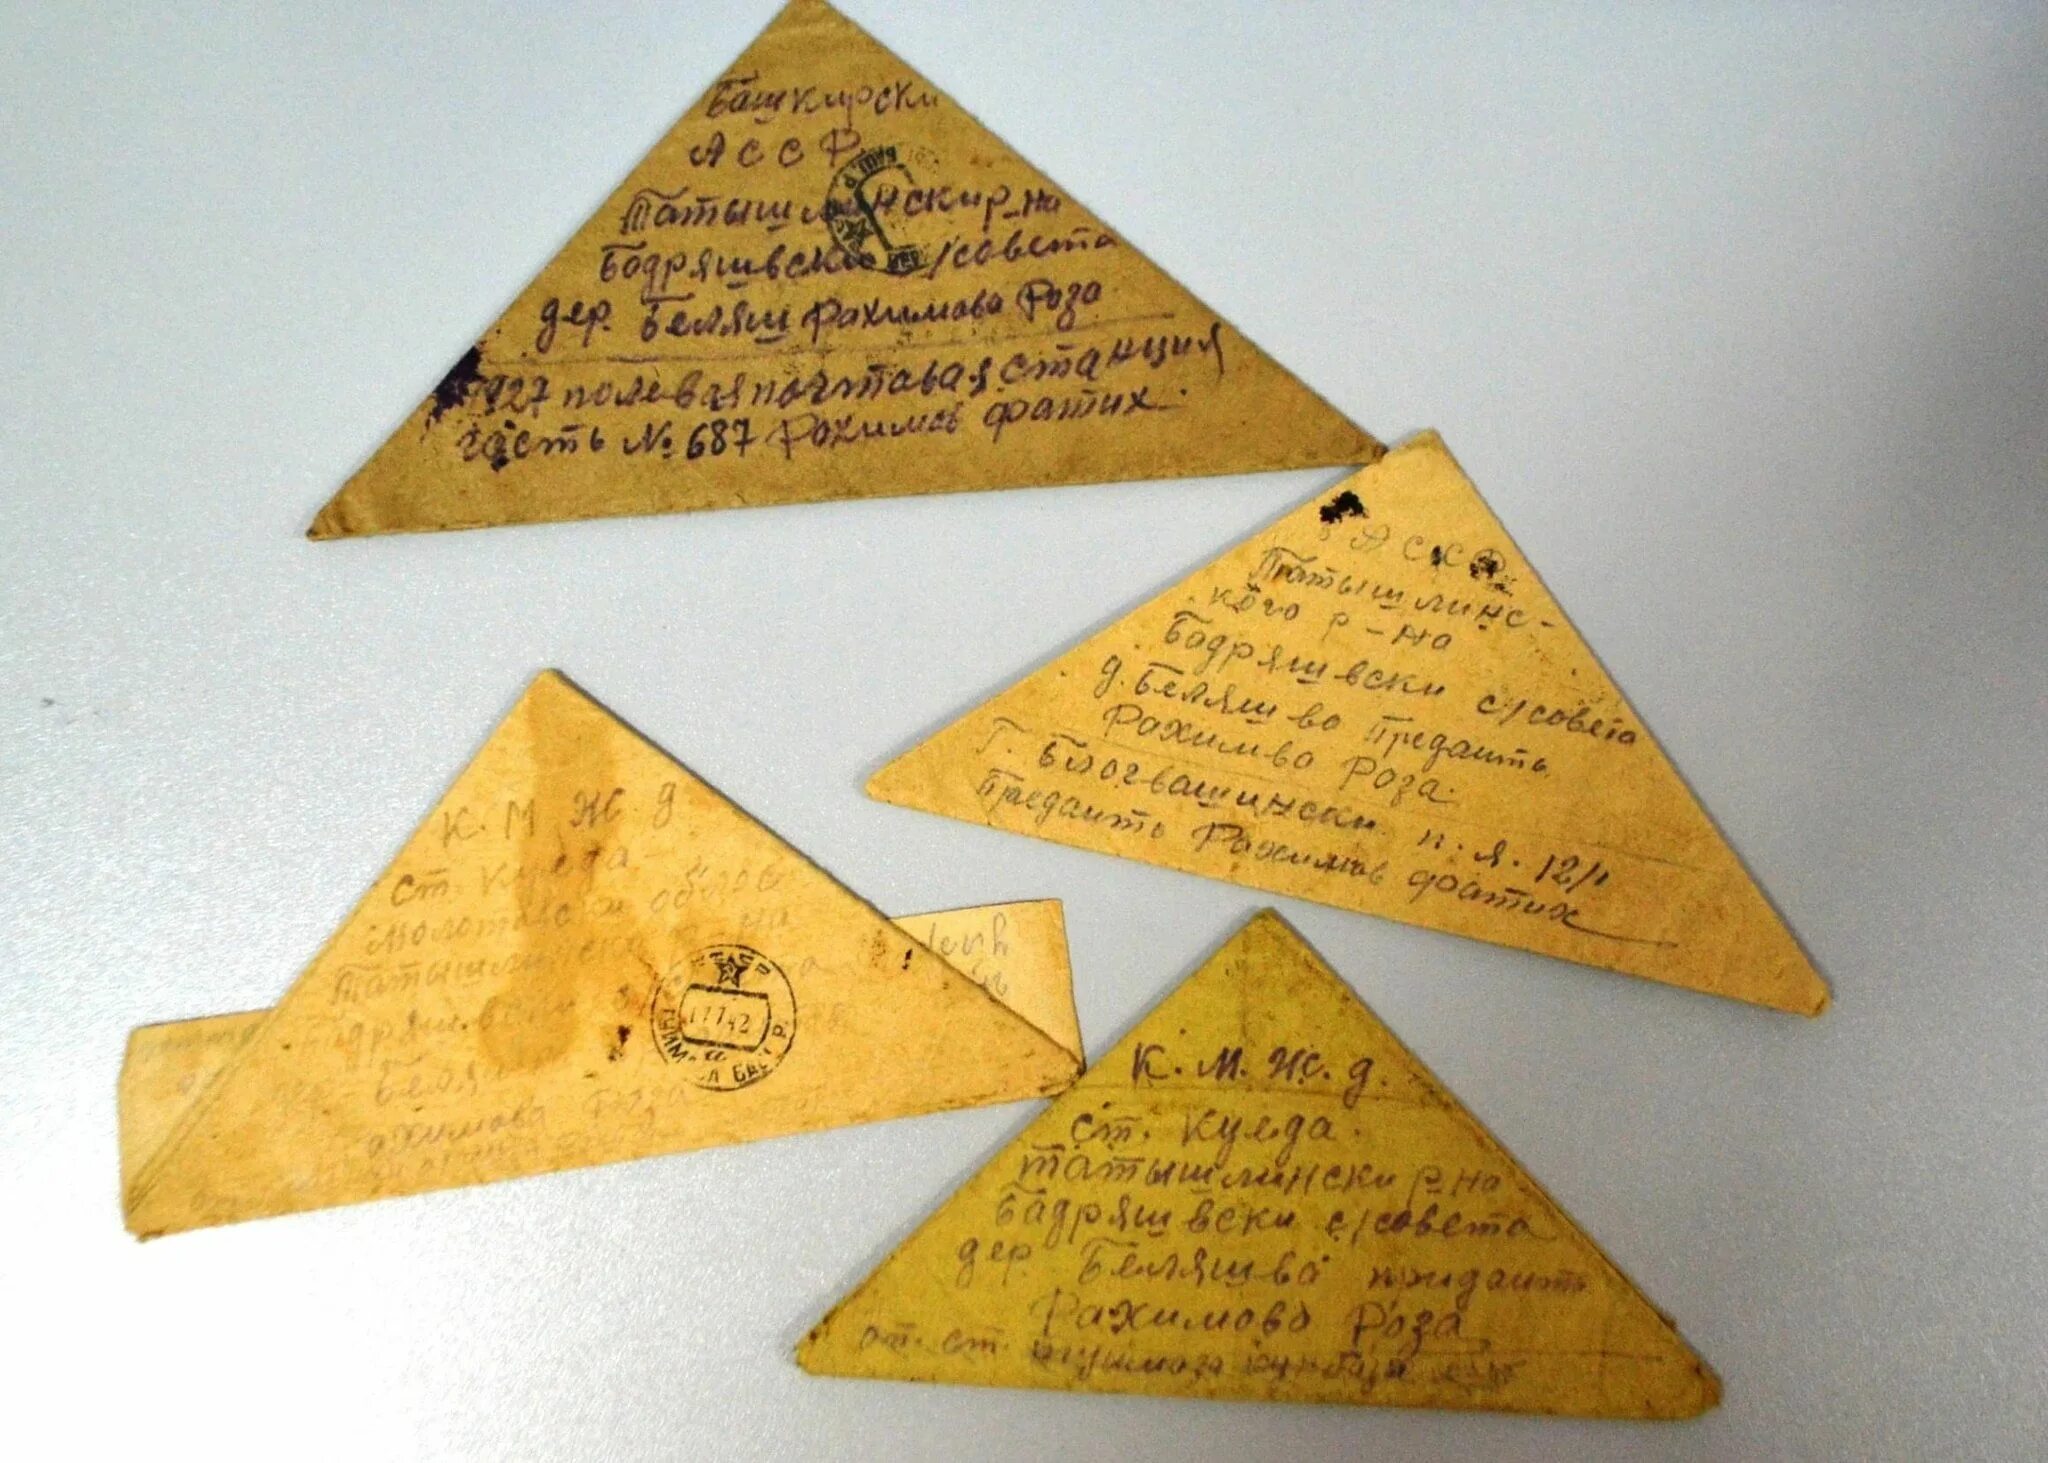 Башкирски
АССР
Татышлински р-на
Бадряшвски с/совета
дер. Беляш Рахимова Роза
927 полевая почтовая станция
часть № 687 Рахимов Фатих.
АССР
Татышлинс-
кого р-на
Бадряшвски с/совета
д. Беляшва Предаить
Рахимва Роза.
Г. Благвашински п.я. 12/1
Предаить Рахимов Фатих
К. М Ж д
ст. Куеда
Молотвски облас
Татышлински р-на
Бадряшвски
Беля
ахимова Роза
СССР
17 7 42
К. М. Ж. д.
ст. Куеда.
Татышлински р-на
Бадряшвски с/совета
дер. Беляшва
Рахимова Роза
от. ст.